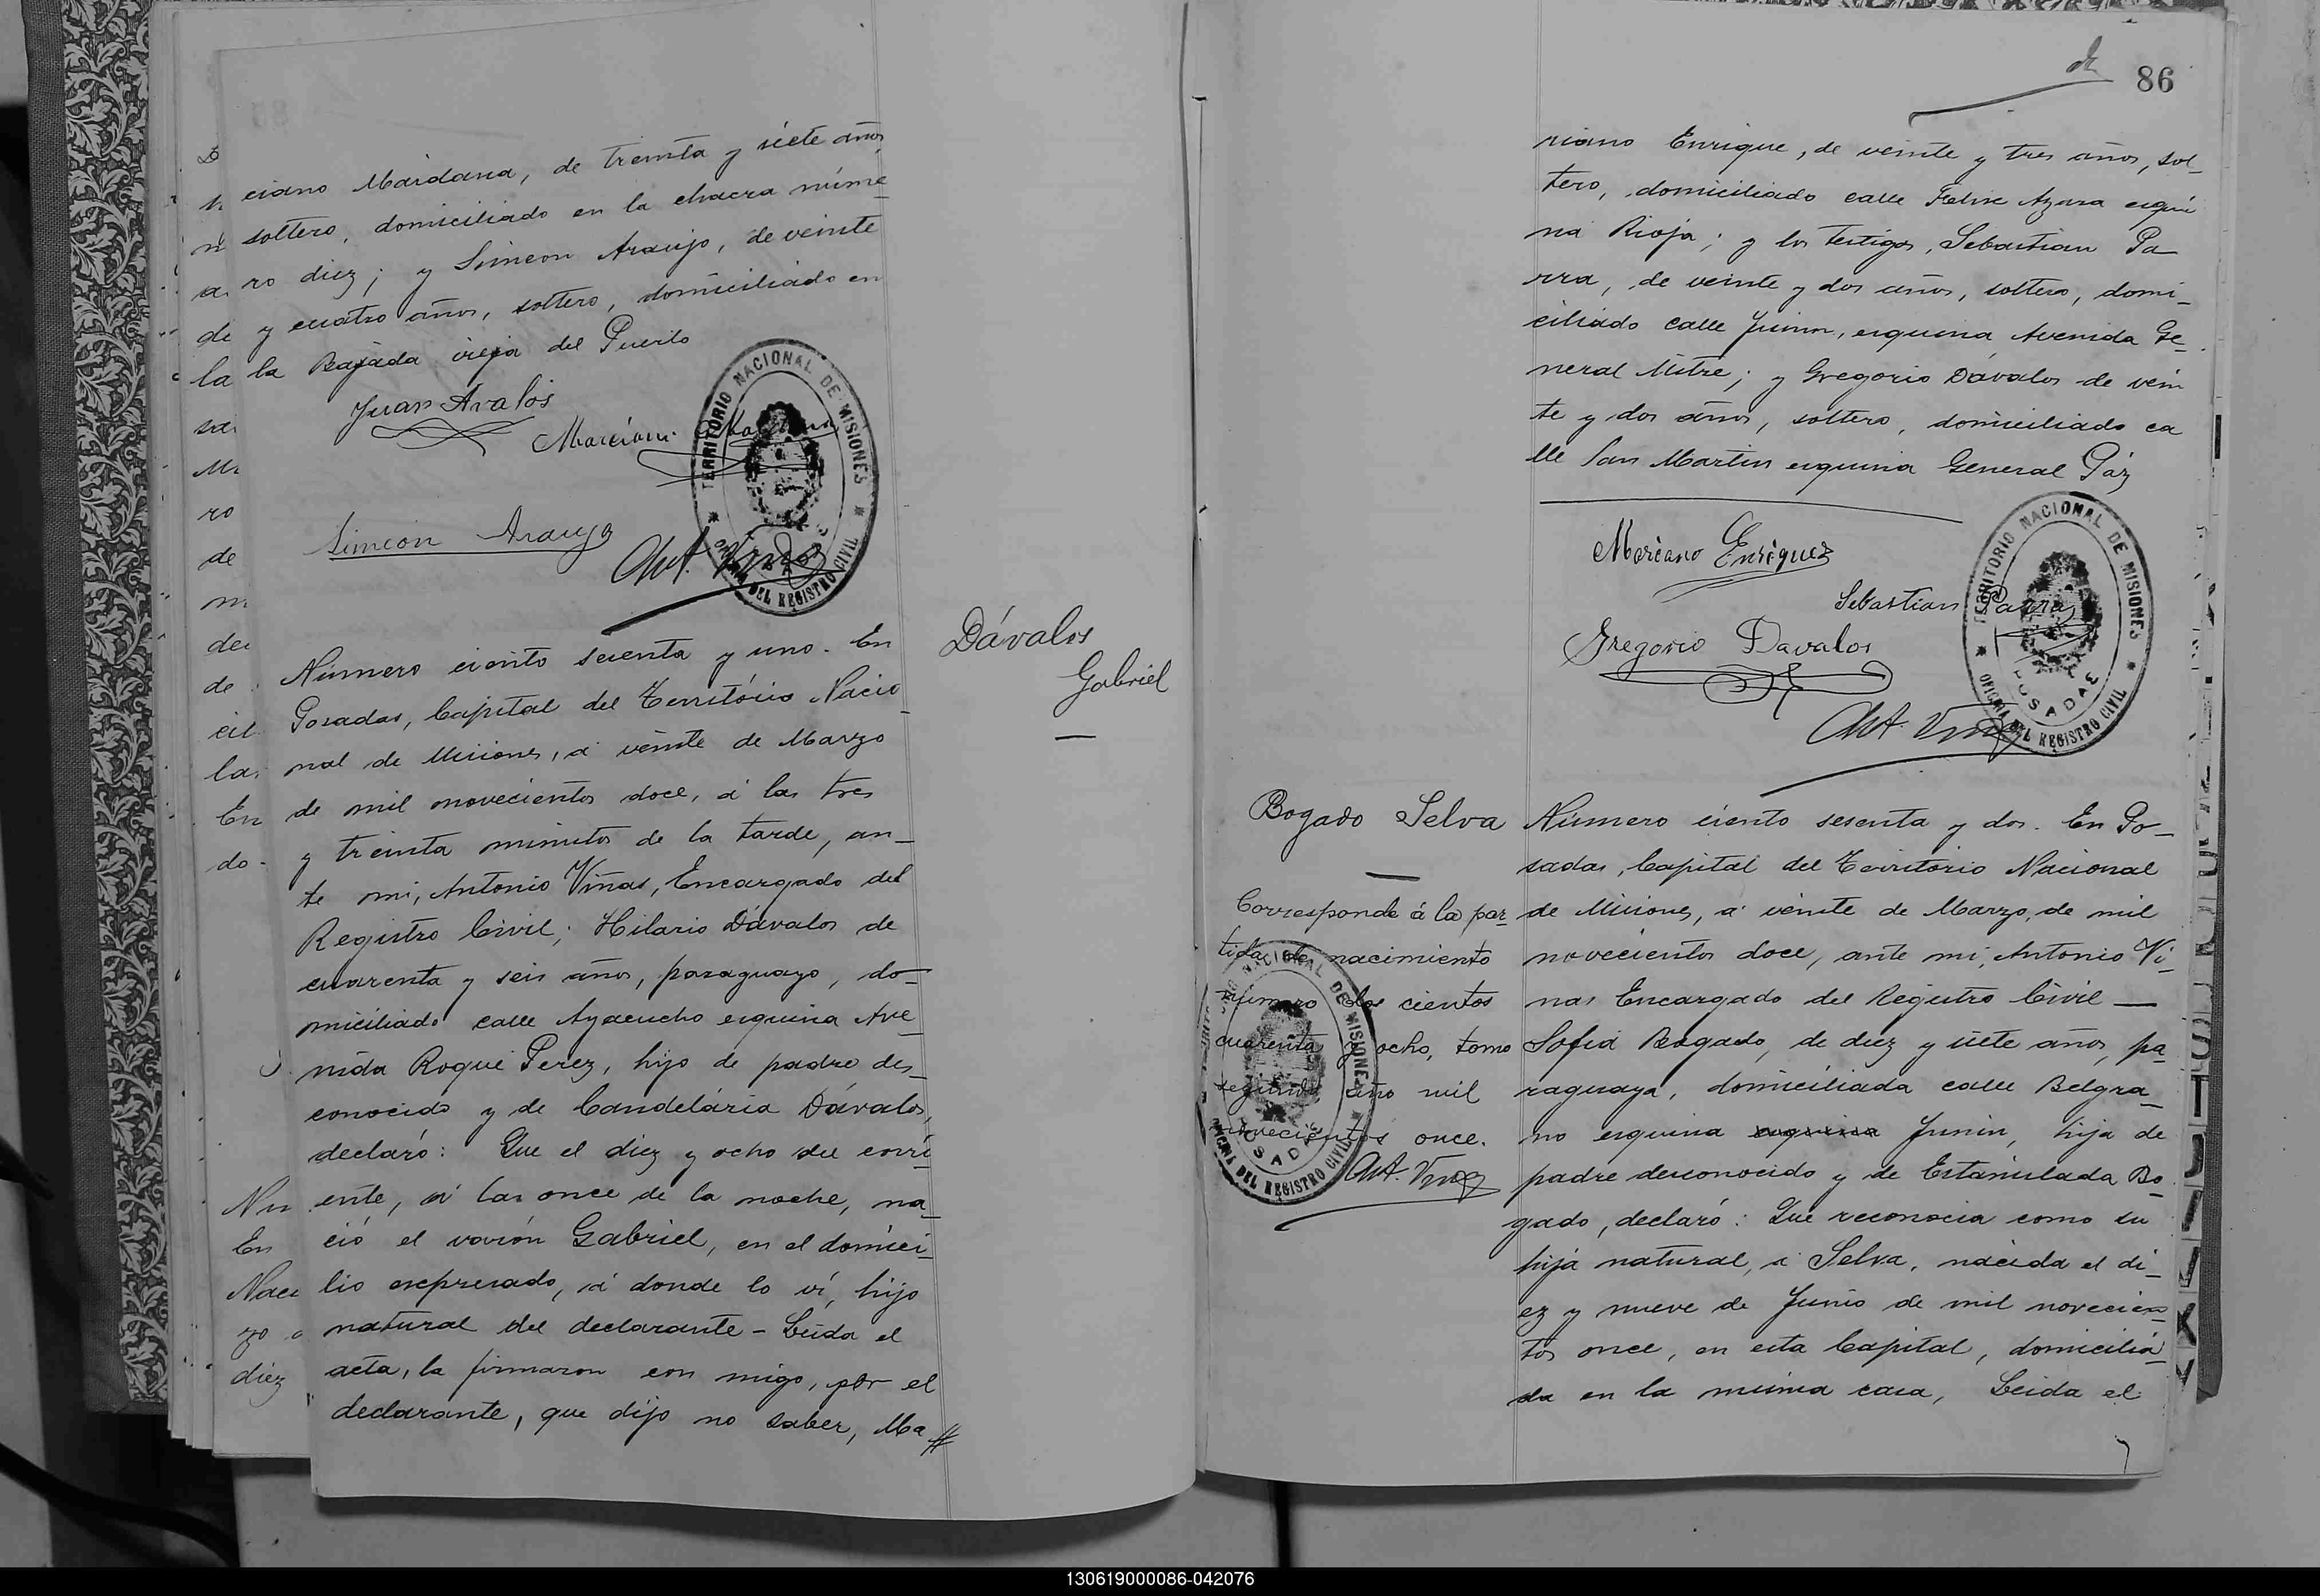 ciano Maidana, de treinta y siete años
soltero, domiciliado en la chacra núme
ro diez; y Simeon Araujo, de veinte
y cuatro años, soltero, domiciliado en
la Bajada vieja del Puerto
Juan Avalos
Marciano Maidana
Simeon Araujo
Ant. Viñas
TERRITORIO NACIONAL DE MISIONES
OFICINA DEL REGISTRO CIVIL
Dávalos
Gabriel
Número ciento sesenta y uno. En
Posadas, Capital del Territorio Nacio
nal de Misiones, á veinte de Marzo
de mil novecientos doce, á las tres
y treinta minutos de la tarde, an_
te mi, Antonio Viñas, Encargado del
Registro Civil; Hilario Dávalos de
cuarenta y seis años, paraguayo, do_
miciliado calle Ayacucho esquina Ave_
nida Roque Perez, hijo de padre des_
conocido y de Candelária Dávalos,
declaró: Que el diez y ocho del corri_
ente, á las once de la noche, na_
ció el varón Gabriel, en el domici_
lio expresado, á donde lo ví, hijo
natural del declarante - Leida el
acta, la firmaron con migo, por el
declarante, que dijo no saber, Ma //
86
riano Enrique, de veinte y tres años, sol_
tero, domiciliado calle Felix Azara esqui
na Rioja; y los testigos, Sebastian Pa
rra, de veinte y dos años, soltero, domi_
ciliado calle Junin, esquina Avenida Ge_
neral Mitre; y Gregorio Dávalos de vein
te y dos años, soltero, domiciliado ca
lle San Martin esquina General Páz
Mariano Enriquez
Sebastian Parra
Gregorio Davalos
Ant. Viñas
TERRITORIO NACIONAL DE MISIONES
POSADAS
OFICINA DEL REGISTRO CIVIL
Bogado Selva
Corresponde á la par_
tida de nacimiento
número dos cientos
cuarenta y ocho, tomo
segundo, año mil
novecientos once.
Ant. Viñas
NACIONAL DE MISIONES
POSADAS
OFICINA DEL REGISTRO CIVIL
Número ciento sesenta y dos. En Po_
sadas, Capital del Territorio Nacional
de Misiones, á veinte de Marzo, de mil
novecientos doce, ante mi, Antonio Vi_
ñas Encargado del Registro Civil —
Sofia Bogado, de diez y siete años, pa
raguaya, domiciliada calle Belgra_
no esquina esquina Junin, hija de
padre desconocido y de Estanislada Bo_
gado, declaró: Que reconocia como su
hija natural, á Selva, nacida el di_
ez y nueve de Junio de mil novecien_
tos once, en esta Capital, domicilia_
da en la misma casa, Leida el
130619000086-042076